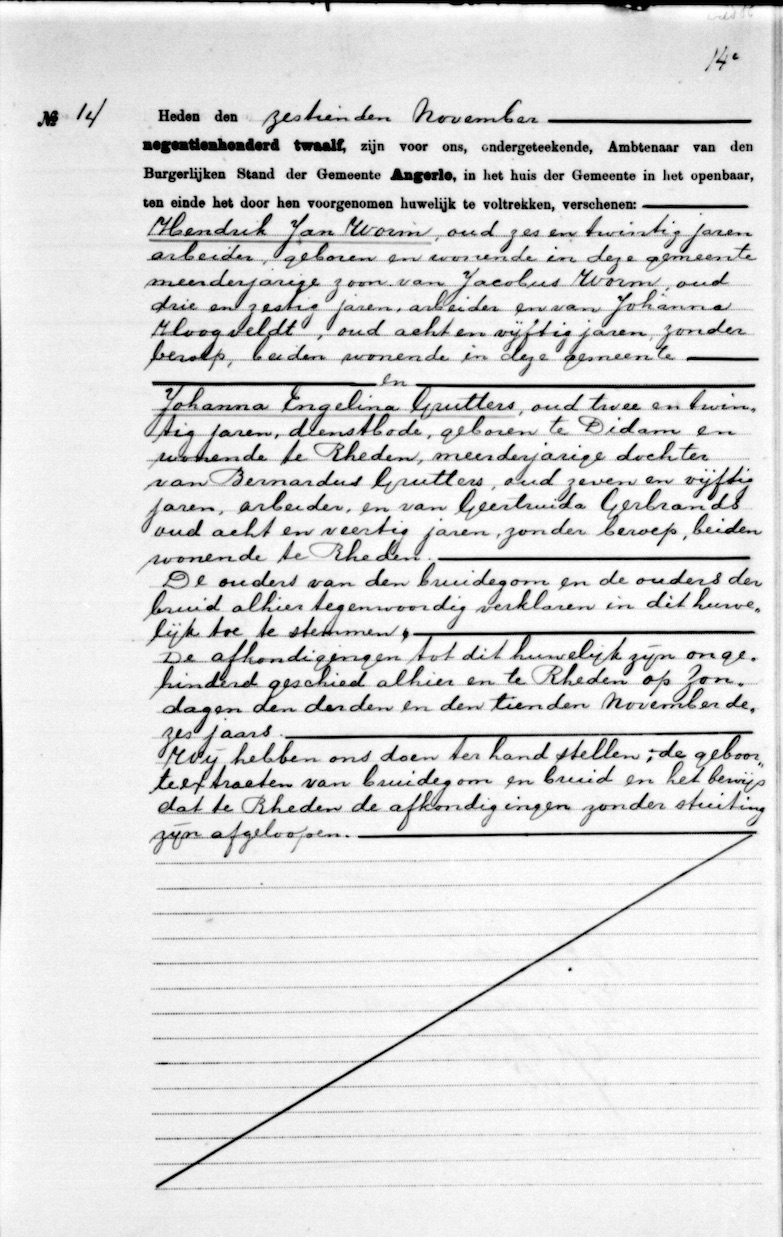 14
№ 14 Heden den zestienden November
negentienhonderd twaalf, zijn voor ons, ondergeteekende, Ambtenaar van den
Burgerlijken Stand der Gemeente Angerlo, in het huis der Gemeente in het openbaar,
ten einde het door hen voorgenomen huwelijk te voltrekken, verschenen:
Hendrik Jan Worm, oud zes en twintig jaren
arbeider, geboren en wonende in deze gemeente
meerderjarige zoon van Jacobus Worm, oud
drie en zestig jaren, arbeider en van Johanna
Hoogveldt, oud acht en vijftig jaren, zonder
beroep, beiden wonende in deze gemeente
en
Johanna Engelina Grutters, oud twee en twin„
tig jaren, dienstbode, geboren te Didam en
wonende te Rheden, meerderjarige dochter
van Bernardus Grutters, oud zeven en vijftig
jaren, arbeider, en van Geertruida Gerbrands
oud acht en veertig jaren, zonder beroep, beiden
wonende te Rheden.
De ouders van den bruidegom en de ouders der
bruid alhier tegenwoordig verklaren in dit huwe„
lijk toe te stemmen,
De afkondigingen tot dit huwelijk zijn onge„
hinderd geschied alhier en te Rheden op Zon„
dagen den derden en den tienden November de„
zes jaars.
Wij hebben ons doen ter hand stellen; de geboor„
teextracten van bruidegom en bruid en het bewijs
dat te Rheden de afkondigingen zonder stuiting
zijn afgeloopen.